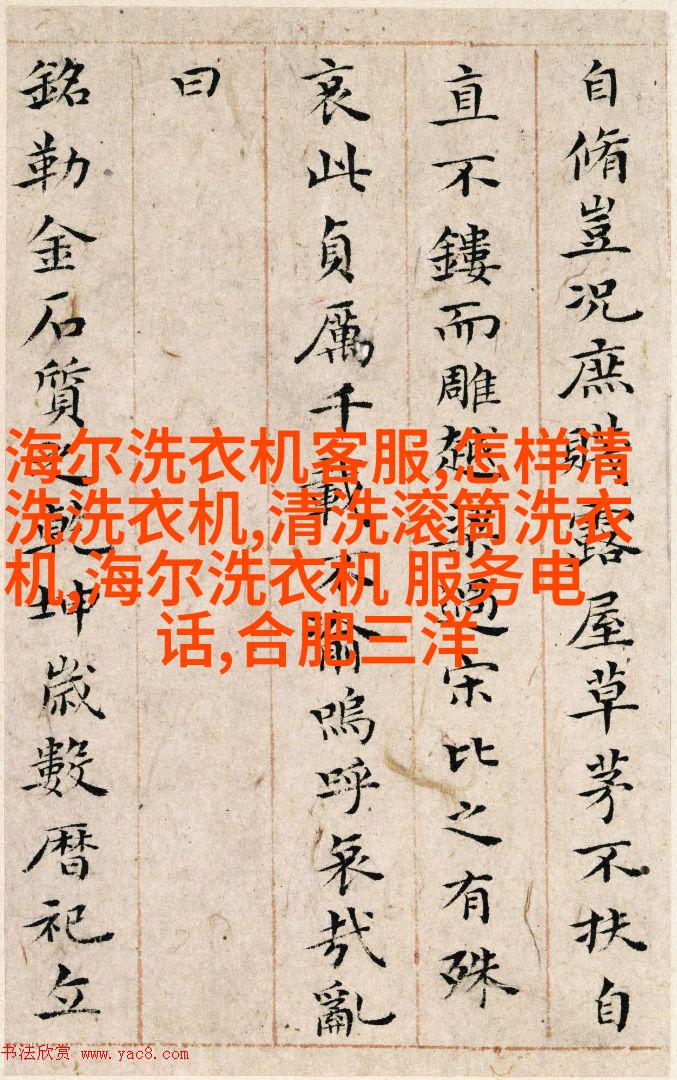 自脩豈況庶賤露屋草茅不扶自
直不鏤而雕越梁過宋比之有殊
哀此貞厲千載不渝嗚呼哀哉亂
曰
銘勒金石質之乾坤歲數暦祀立
海尔洗衣机客服,怎样清
洗洗衣机,清洗滚筒洗衣
机,海尔洗衣机 服务电
话,合肥三洋
书法欣赏 www.yac8.com